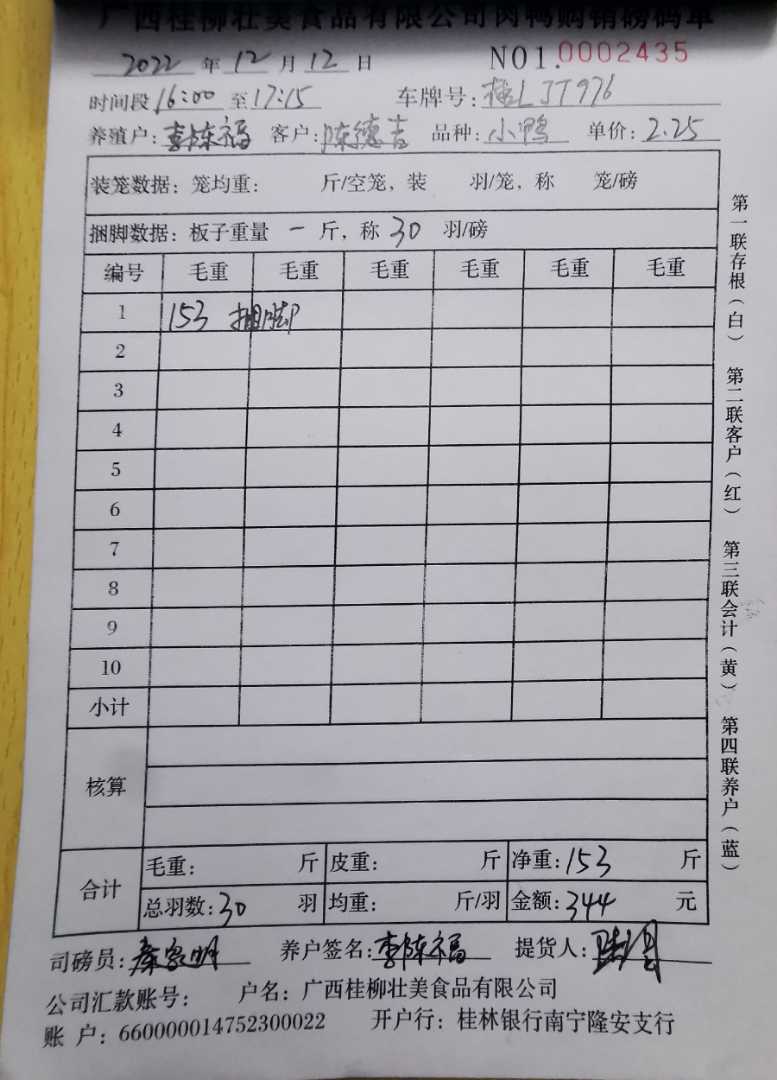 广西桂柳壮美食品有限公司肉鸭购销磅码单
2022 年 12 月 12 日 NO1.0002435
时间段 16:00 至 17:15 车牌号: 桂L JT976
养殖户: 李陈福 客户: 陈德吉 品种: 小鸭 单价: 2.25
装笼数据: 笼均重: 斤/空笼, 装 羽/笼, 称 笼/磅
捆脚数据: 板子重量 一 斤, 称 30 羽/磅
编号 毛重 毛重 毛重 毛重 毛重 毛重
1 153 捆脚
2
3
4
5
6
7
8
9
10
小计
核算
合计
毛重: 斤 皮重: 斤 净重: 153 斤
总羽数: 30 羽 均重: 斤/羽 金额: 344 元
司磅员: 养户签名: 李陈福 提货人:
公司汇款账号: 户名: 广西桂柳壮美食品有限公司
账 户: 660000014752300022 开户行: 桂林银行南宁隆安支行
第一联存根(白) 第二联客户(红) 第三联会计(黄) 第四联养户(蓝)